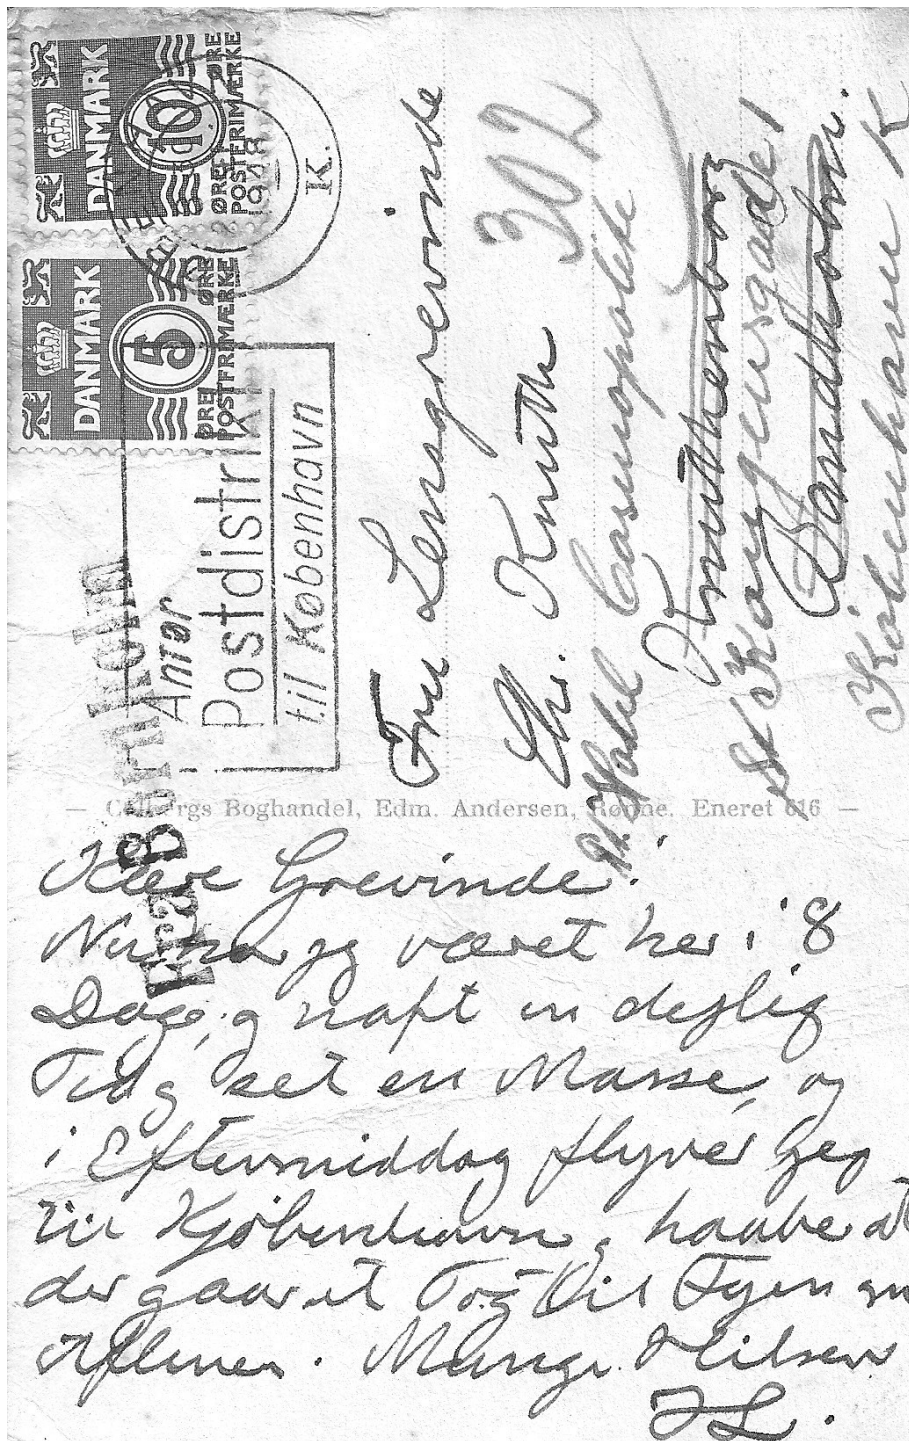 DANMARK
10
ØRE ØRE
POSTFRIMÆRKE
DANMARK
5
ØRE ØRE
POSTFRIMÆRKE
1948
K.
Anfør
Postdistrikt
til København
Fra Bornholm
Fru Lensgrevinde
Chr. Knuth
302
Hotel Cosmopolite
Knuthenborg
St Kongensgade 1
Bandholm.
København K
— Colbergs Boghandel, Edm. Andersen, Rønne. Eneret 616 —
Kære Grevinde!
Nu har jeg været her i 8
Dage, og haft en dejlig
Tid og set en Masse, og
i Eftermiddag flyver jeg
til Kjøbenhavn, haaber at
der gaar et Tog til Fyen
Aften. Mange Hilsen
JL.